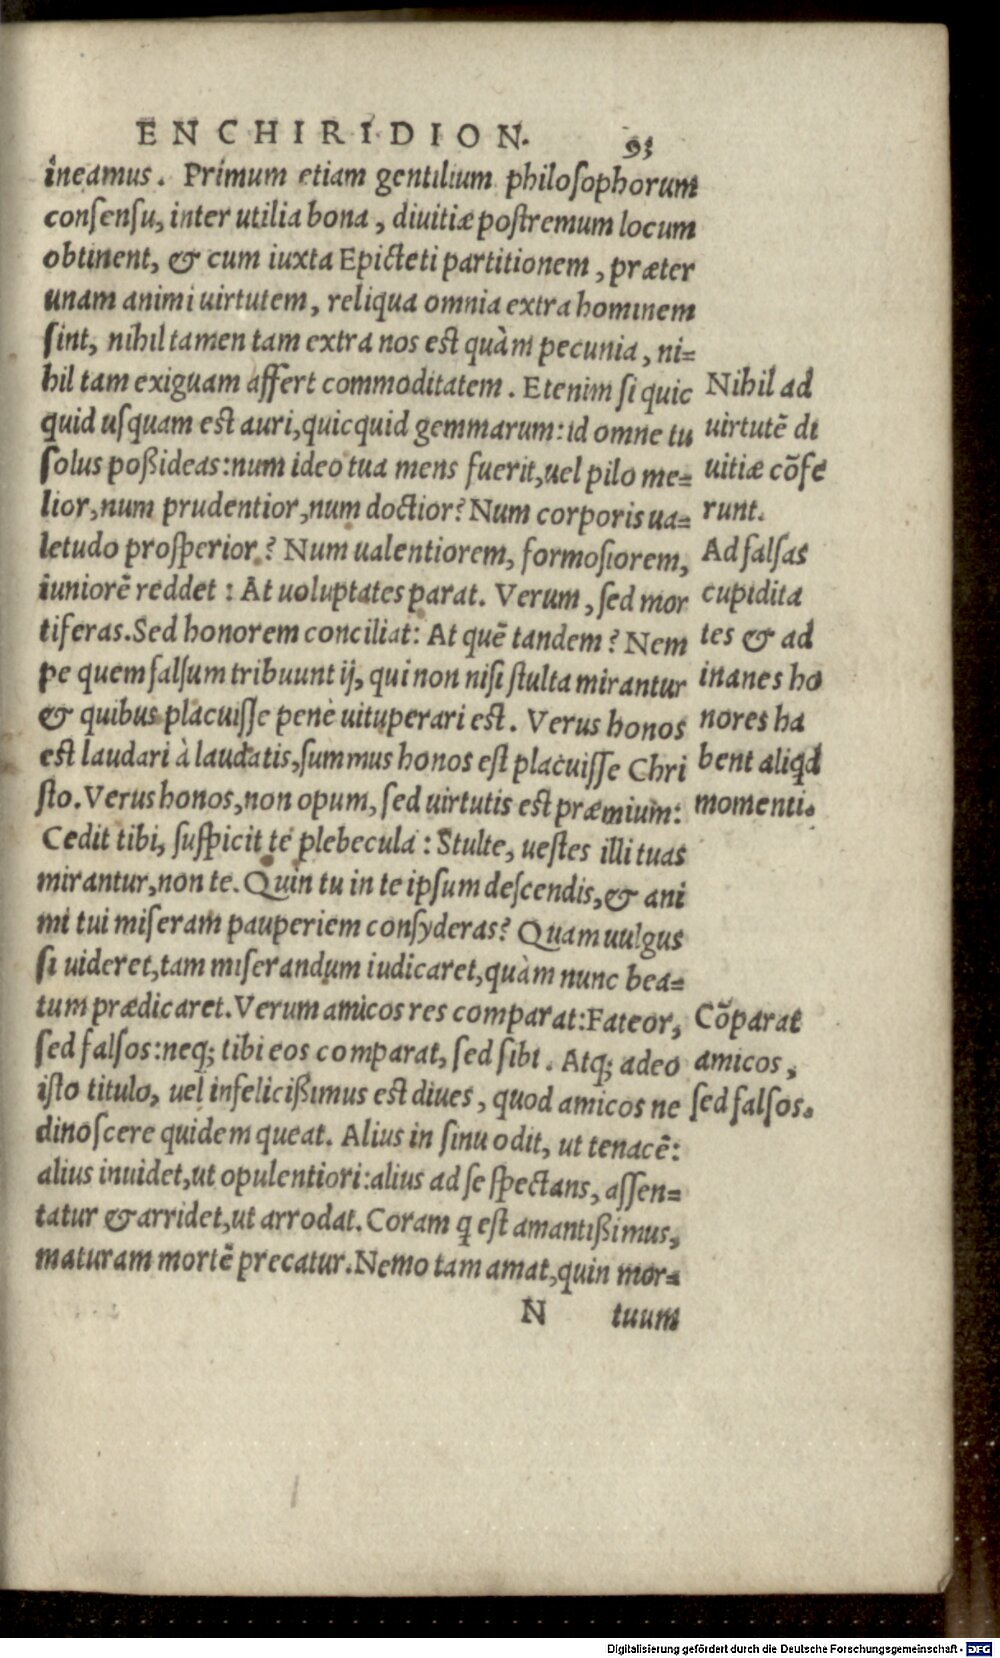 ENCHIRIDION. 93
ineamus. Primum etiam gentilium philosophorum
consensu, inter utilia bona, diuitiæ postremum locum
obtinent, & cum iuxta Epicteti partitionem, præter
unam animi uirtutem, reliqua omnia extra hominem
sint, nihil tamen tam extra nos est quàm pecunia, ni=
hil tam exiguam affert commoditatem. Etenim si quic
quid usquam est auri, quicquid gemmarum: id omne tu
solus poßideas: num ideo tua mens fuerit, uel pilo me=
lior, num prudentior, num doctior? Num corporis ua=
letudo prosperior? Num ualentiorem, formosiorem,
iuniorē reddet: At uoluptates parat. Verum, sed mor
tiferas. Sed honorem conciliat: At quē tandem? Nem
pe quem falsum tribuunt ij, qui non nisi stulta mirantur
& quibus placuisse penè uituperari est. Verus honos
est laudari à laudatis, summus honos est placuisse Chri
sto. Verus honos, non opum, sed uirtutis est præmium:
Cedit tibi, suspicit te plebecula: Stulte, uestes illi tuas
mirantur, non te. Quin tu in te ipsum descendis, & ani
mi tui miseram pauperiem consyderas? Quam uulgus
si uideret, tam miserandum iudicaret, quàm nunc bea=
tum prædicaret. Verum amicos res comparat: Fateor,
sed falsos: neq; tibi eos comparat, sed sibi. Atq; adeo
isto titulo, uel infelicißimus est diues, quod amicos ne
dinoscere quidem queat. Alius in sinu odit, ut tenacē:
alius inuidet, ut opulentiori: alius ad se spectans, assen=
tatur & arridet, ut arrodat. Coram q est amantißimus,
maturam mortē precatur. Nemo tam amat, quin mor=
N tuum
Nihil ad
uirtutē di
uitiæ cōfe
runt.
Ad falsas
cupidita
tes & ad
inanes ho
nores ha
bent aliqd
momenti.
Cōparat
amicos,
sed falsos.
Digitalisierung gefördert durch die Deutsche Forschungsgemeinschaft - DFG